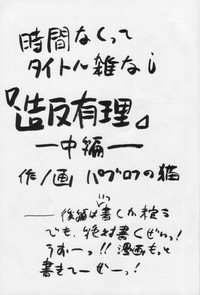 時間なくって
タイトル雑な
『造反有理』
―中編―
作/画 パブロフの猫
――後編はいつ書くか
でも、絶対書くぜぃっ!
うおーっ!!漫画もっと
書きてーぜーっ!